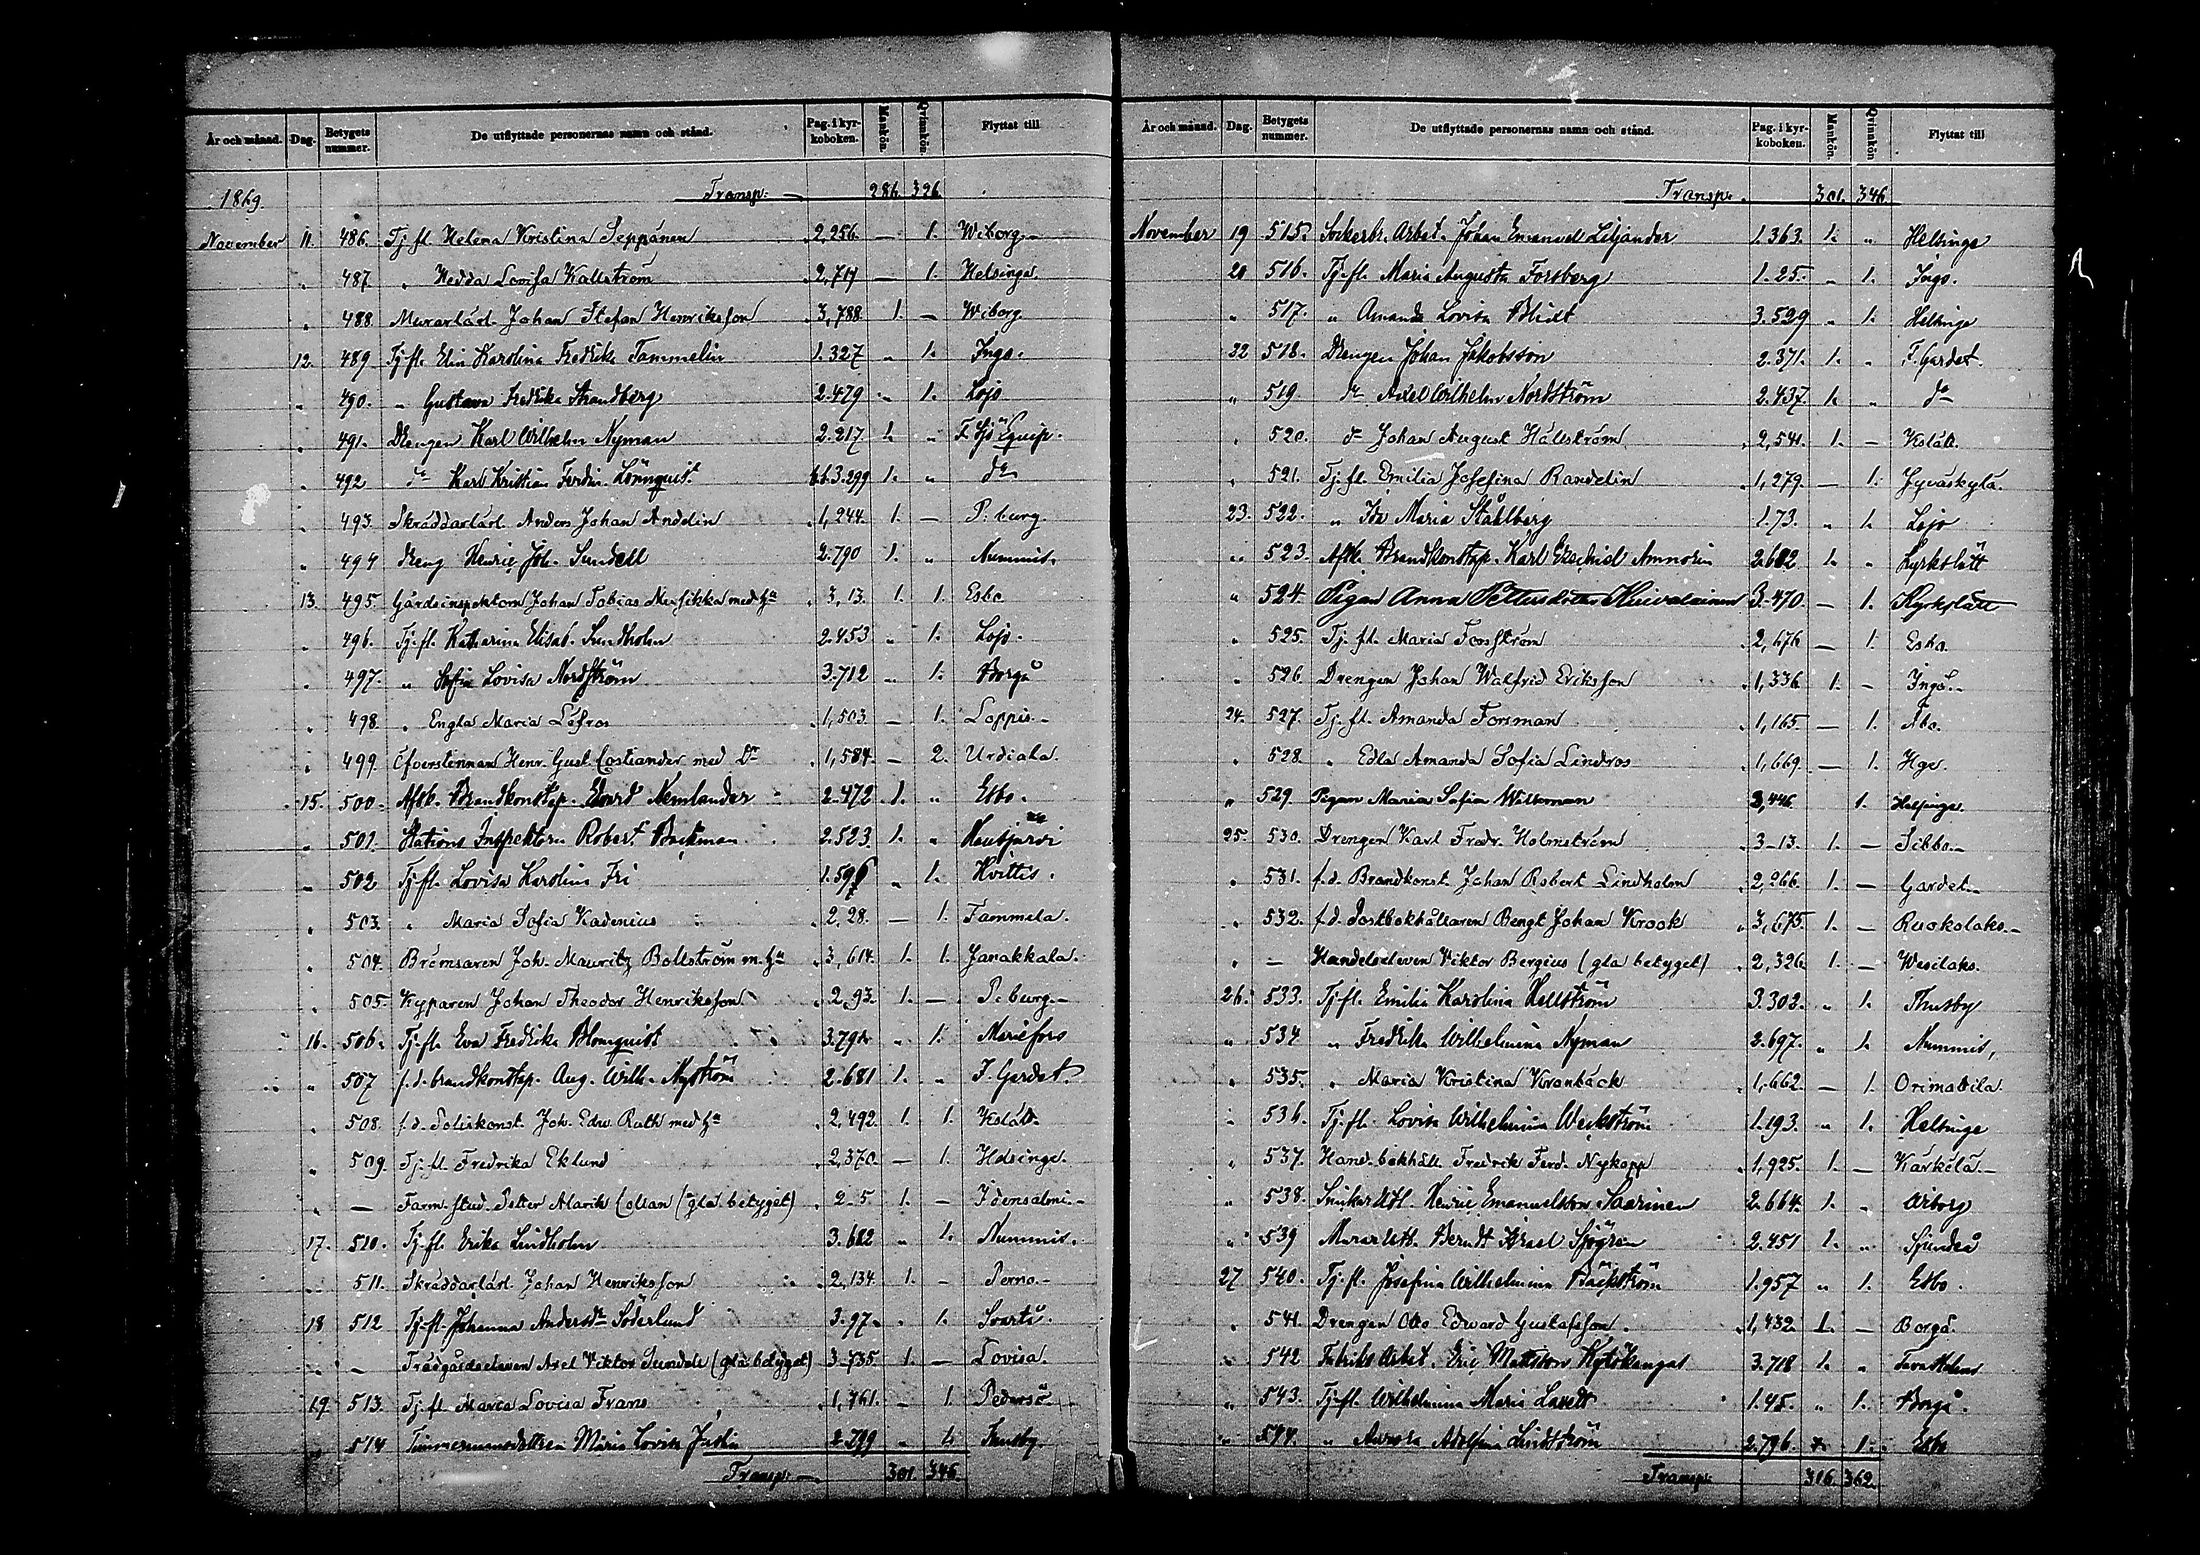 År och månad. Dag. Betygets nummer. De utflyttade personernas namn och stånd. Pag. i kyrkoboken. Mankön. Qvinnkön. Flyttat till
1869. Transp. 286. 326.
November 11. 486. Tj. fl. Helena Kristina Seppänen 2,256. — 1. Wiborg.
" 487. " Hedda Lovisa Kallström — 1. Helsinge.
" 488. Murarlärl. Johan Stefan Henriksson 3,788. 1. — Wiborg
12. 489. Tj. fl. Elin Karolina Fredrika Tammelin 1.327 " 1. Ingo.
" 490. " Gustava Fredrika Strandberg 2.479 " 1. Lojo
" 491. Drengen Karl Wilhelm Nyman 2.217 1. " F. Sjö Equip.
" 492 do Karl Kristian Ferdin. Lönnquist 3.299 1. " do
" 493. Skräddarlärl. Anders Johan Andelin 1,244. 1. — P:burg.
" 494 Dreng Henric Joh. Sundell 2.790 1. " Nummis.
13. 495. Gårdsinspektorn Johan Tobias Musikka med Hu 3,13. 1. 1. Esbo
" 496. Tj. fl. Katharina Elisab. Sundholm 2.453 " 1. Lojo.
" 497. " Sofia Lovisa Nordström 3.712 " 1. Borgå
" 498. " Engla Maria Löfros 1,503. — 1. Loppis.
" 499. Henr. Gust. Costiander med Dr 1,584. — 2. Urdiala.
15. 500. Afsk. Brandkonstap. Edvard Nemlander 2.472 1. " Esbo.
" 501. Stations Inspektorn Robert Backman 2.523. 1. " Hausjärvi
" 502. Tj. fl. Lovisa Karolina Fri " 1. Hvittis.
" 503. " Maria Sofia Kadenius 2,28. — 1. Tammela.
" 504. Bromsaren Joh. Mauritz Bollström m. Hu 3,614. 1. 1. Janakkala.
" 505. Kyparen Johan Theodor Henriksson 2,93. 1. — P:burg.
16. 506. Tj. fl. Eva Fredrika Blomquist " 1. Mariefors
" 507 f. d. brandkonstap. Aug. Wilh. Nyström 2.681 1. " F. Gardet.
" 508. f. d. Poliskonst. Joh. Edw. Ruth med Hu 2,492. 1. 1. Kslätt.
" 509. Tj. fl. Fredrika Eklund 2,370. — 1. Helsinge.
" — Farm. stud. Petter Alarik Collan (gla betyget) 2-5 1. — Idensalmi.
17. 510. Tj. fl. Erika Lindholm 3.682 " 1. Nummis.
" 511. Skräddarlärl. Johan Henriksson 2,134. 1. — Perno.
18 512 Tj. fl. Johanna Andersdr Söderlund 3.97. " 1. Svartå.
" — Trädgårdseleven Axel Viktor Sundell (gla betyget) 3-735 1. — Lovisa.
19. 513. Tj. fl. Maria Lovisa Frans 1,761. — 1. Pedersö.
" 514 Timmermansdottren Maria Lovisa Justin 2.799 " 1. Thusby.
Transp. 301. 346.
År och månad. Dag. Betygets nummer. De utflyttade personernas namn och stånd. Pag. i kyrkoboken. Mankön. Qvinnkön Flyttat till
Transp. 301. 346.
November 19 515. Sockerbr. Arbet. Johan Emanuel Liljander 1.363. 1. " Helsinge
20 516. Tj. fl. Maria Augusta Forsberg 1.25. " 1. Ingo.
" 517. " Amanda Lovisa Blidt 3.529 " 1. Helsinge
22 518. Drengen Johan Jakobsson 2.371. 1. " F. Gardet.
" 519 do Axel Wilhelm Nordström 2.437. 1. " do
" 520. do Johan August Hällström 2,541. 1. — Kslätt.
" 521. Tj. fl. Emilia Josefina Randelin 1,279. — 1. Jyväskylä.
23. 522. " Ida Maria Ståhlberg 1.73. " 1. Lojo
" 523. Afsk. Brandkonstap. Karl Ezechiel Ammorin 1. " Kyrkslätt
" 524. Pigan Anna Pettersdotter Huivolainen 3-470. — 1. Kyrkslätt
" 525. Tj. fl. Maria Forsström 2,676 — 1. Esbo.
" 526. Drengen Johan Walfrid Eriksson 1,336. 1. — Ingå.
24. 527. Tj. fl. Amanda Forsman 1,165. — 1. Åbo.
" 528. " Edla Amanda Sofia Lindros 1,669. — 1. Hge.
" 529. Pigan Maria Sofia Willeman 2,446 1. Helsinge.
25. 530. Drengen Karl Fredr. Holmström 3-13. 1. — Sibbo.
" 531. f. d. Brandkonst. Johan Robert Lindholm 2,266. 1. — Gardet.
" 532. f. d. Postbokhållaren Bengt Johan Krook 3,675. 1. — Ruokolaks.
" — Handelseleven Viktor Bergius (gla betyget) 2,326. 1. — Wesilaks.
26. 533. Tj. fl. Emilia Karolina Hellström 3.302. " 1. Thusby
" 534 " Fredrika Wilhelmina Nyman 2.697. " 1. Nummis,
" 535. " Maria Kristina Kronbäck 1,662. — 1. Orimattila.
" 536. Tj. fl. Lovisa Wilhelmina Weckström 1.193. " 1. Helsinge
" 537. Hand. bokhåll. Fredrik Ferd. Nykopp 1,925. 1. — Kärkölä.
" 538. Snikarlärl. Henric Emanuelsson Saarinen 2.664. 1. " Wiborg
" 539 Murarlärl. Berndt Israel Sjögren 2.451 1. " Sjundeå
27 540. Tj. fl. Josefina Wilhelmina Bäckström 1.957 " 1. Esbo.
" 541. Drengen Otto Edward Gustafsson. 1,432. 1. — Borgå.
" 542 Fabriks Arbet. Eric Mattsson Kytökangas 3.718 1. " Tavastehus
" 543. Tj. fl. Wilhelmina Maria 1.45. " 1. Borgå.
" 544. " Aurora Adolfina Lindström 2.796. 1. Esbo
Transp. 316. 362.